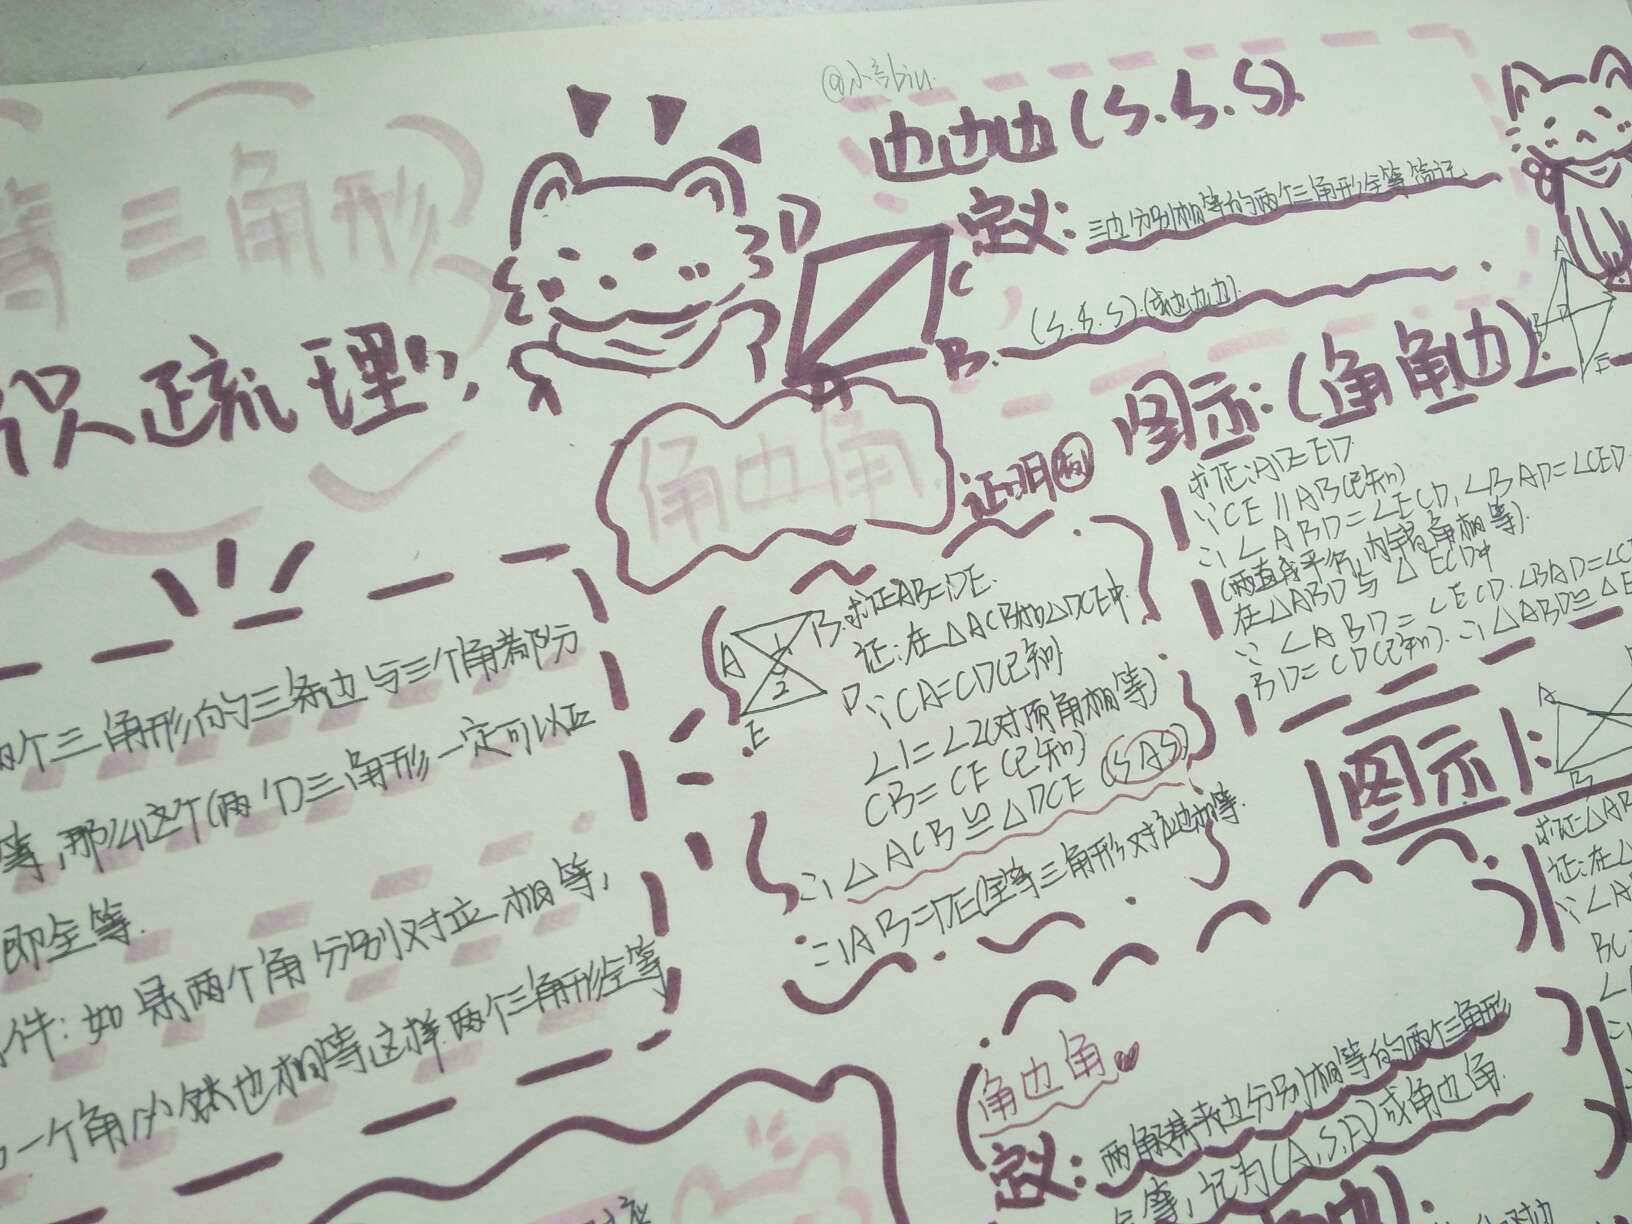 @小言biu.
等 三角形
识疏理
边边边(S.S.S).
定义: 三边分别相等的两个三角形全等简记
(S.S.S).(或边边边).
D
C
B.
A
角边角
证明例
B.求证AB=DE.
证:在△ACB和△DCE中
A
1
2
D
E
∵CA=CD(已知)
∠1=∠2(对顶角相等)
CB=CE(已知)
∴△ACB≌△DCE (SAS)
∴AB=DE(全等三角形对应边相等.
图示:(角角边).
A
B
D
E
求证:AD=ED
∵CE∥AB(已知)
∴∠ABD=∠ECD,∠BAD=∠CED
(两直线平行,内错角相等).
在△ABD与△ECD中
∵∠ABD=∠ECD.∠BAD=∠C
BD=CD(已知).∴△ABD≌△E
图示:
A
B
求证△AB
证:在△
∵∠A
BC
∠
两个三角形的三条边与三个角都分
等,那么这个(两个)三角形一定可以
即全等.
件:如果两个角分别对应相等,
一个角必然也相等这样两个三角形全等
角边角
定义: 两角及其夹边分别相等的两个三角形
全等,记为(A.S.A)或角边角.